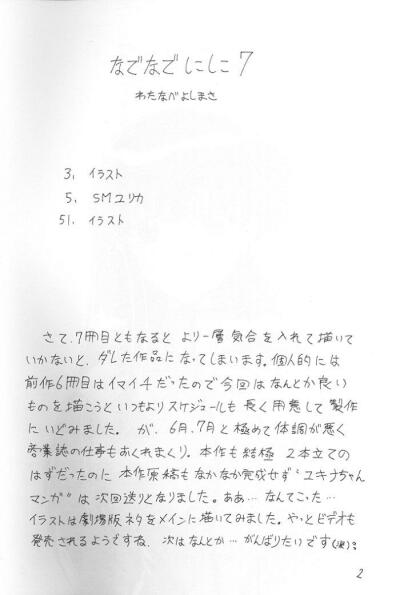 なでなでしにしに7
わたなべよしまさ
3, イラスト
5, SMユリカ
51, イラスト
さて、7冊目ともなると より一層 気合を入れて描いて
いかないと、ダレた作品になってしまいます。個人的には
前作6冊目はイマイチだったので今回はなんとか良い
ものを描こうといつもよりスケジュールも長く用意して製作
にいどみました。が、6月、7月と極めて体調が悪く
商業誌の仕事もおくれまくり。本作も結極 2本立ての
はずだったのに本作原稿もなかなか完成せず“ユキナちゃん
マンガ”は次回送りとなりました。ああ…なんてこった…
イラストは劇場版ネタをメインに描いてみました。やっとビデオも
発売されるようですね、次はなんとか…がんばりたいです(涙)。
2